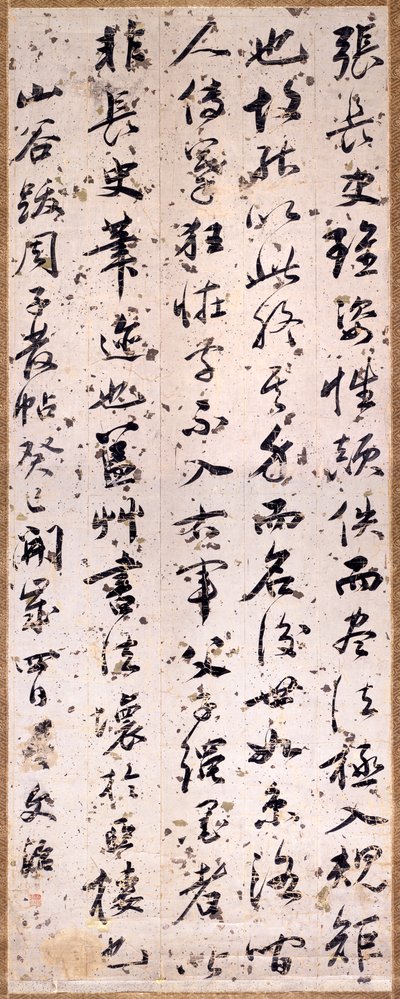 張長史雖姿性顛佚而書法極入規矩
也故能以此終其身而名後世如京洛間
人傳摹狂怪字不入右軍父子繩墨者皆
非長史筆迹也蓋艸書法壞於亞棲也
山谷跋周子發帖癸巳開歲四日王文治